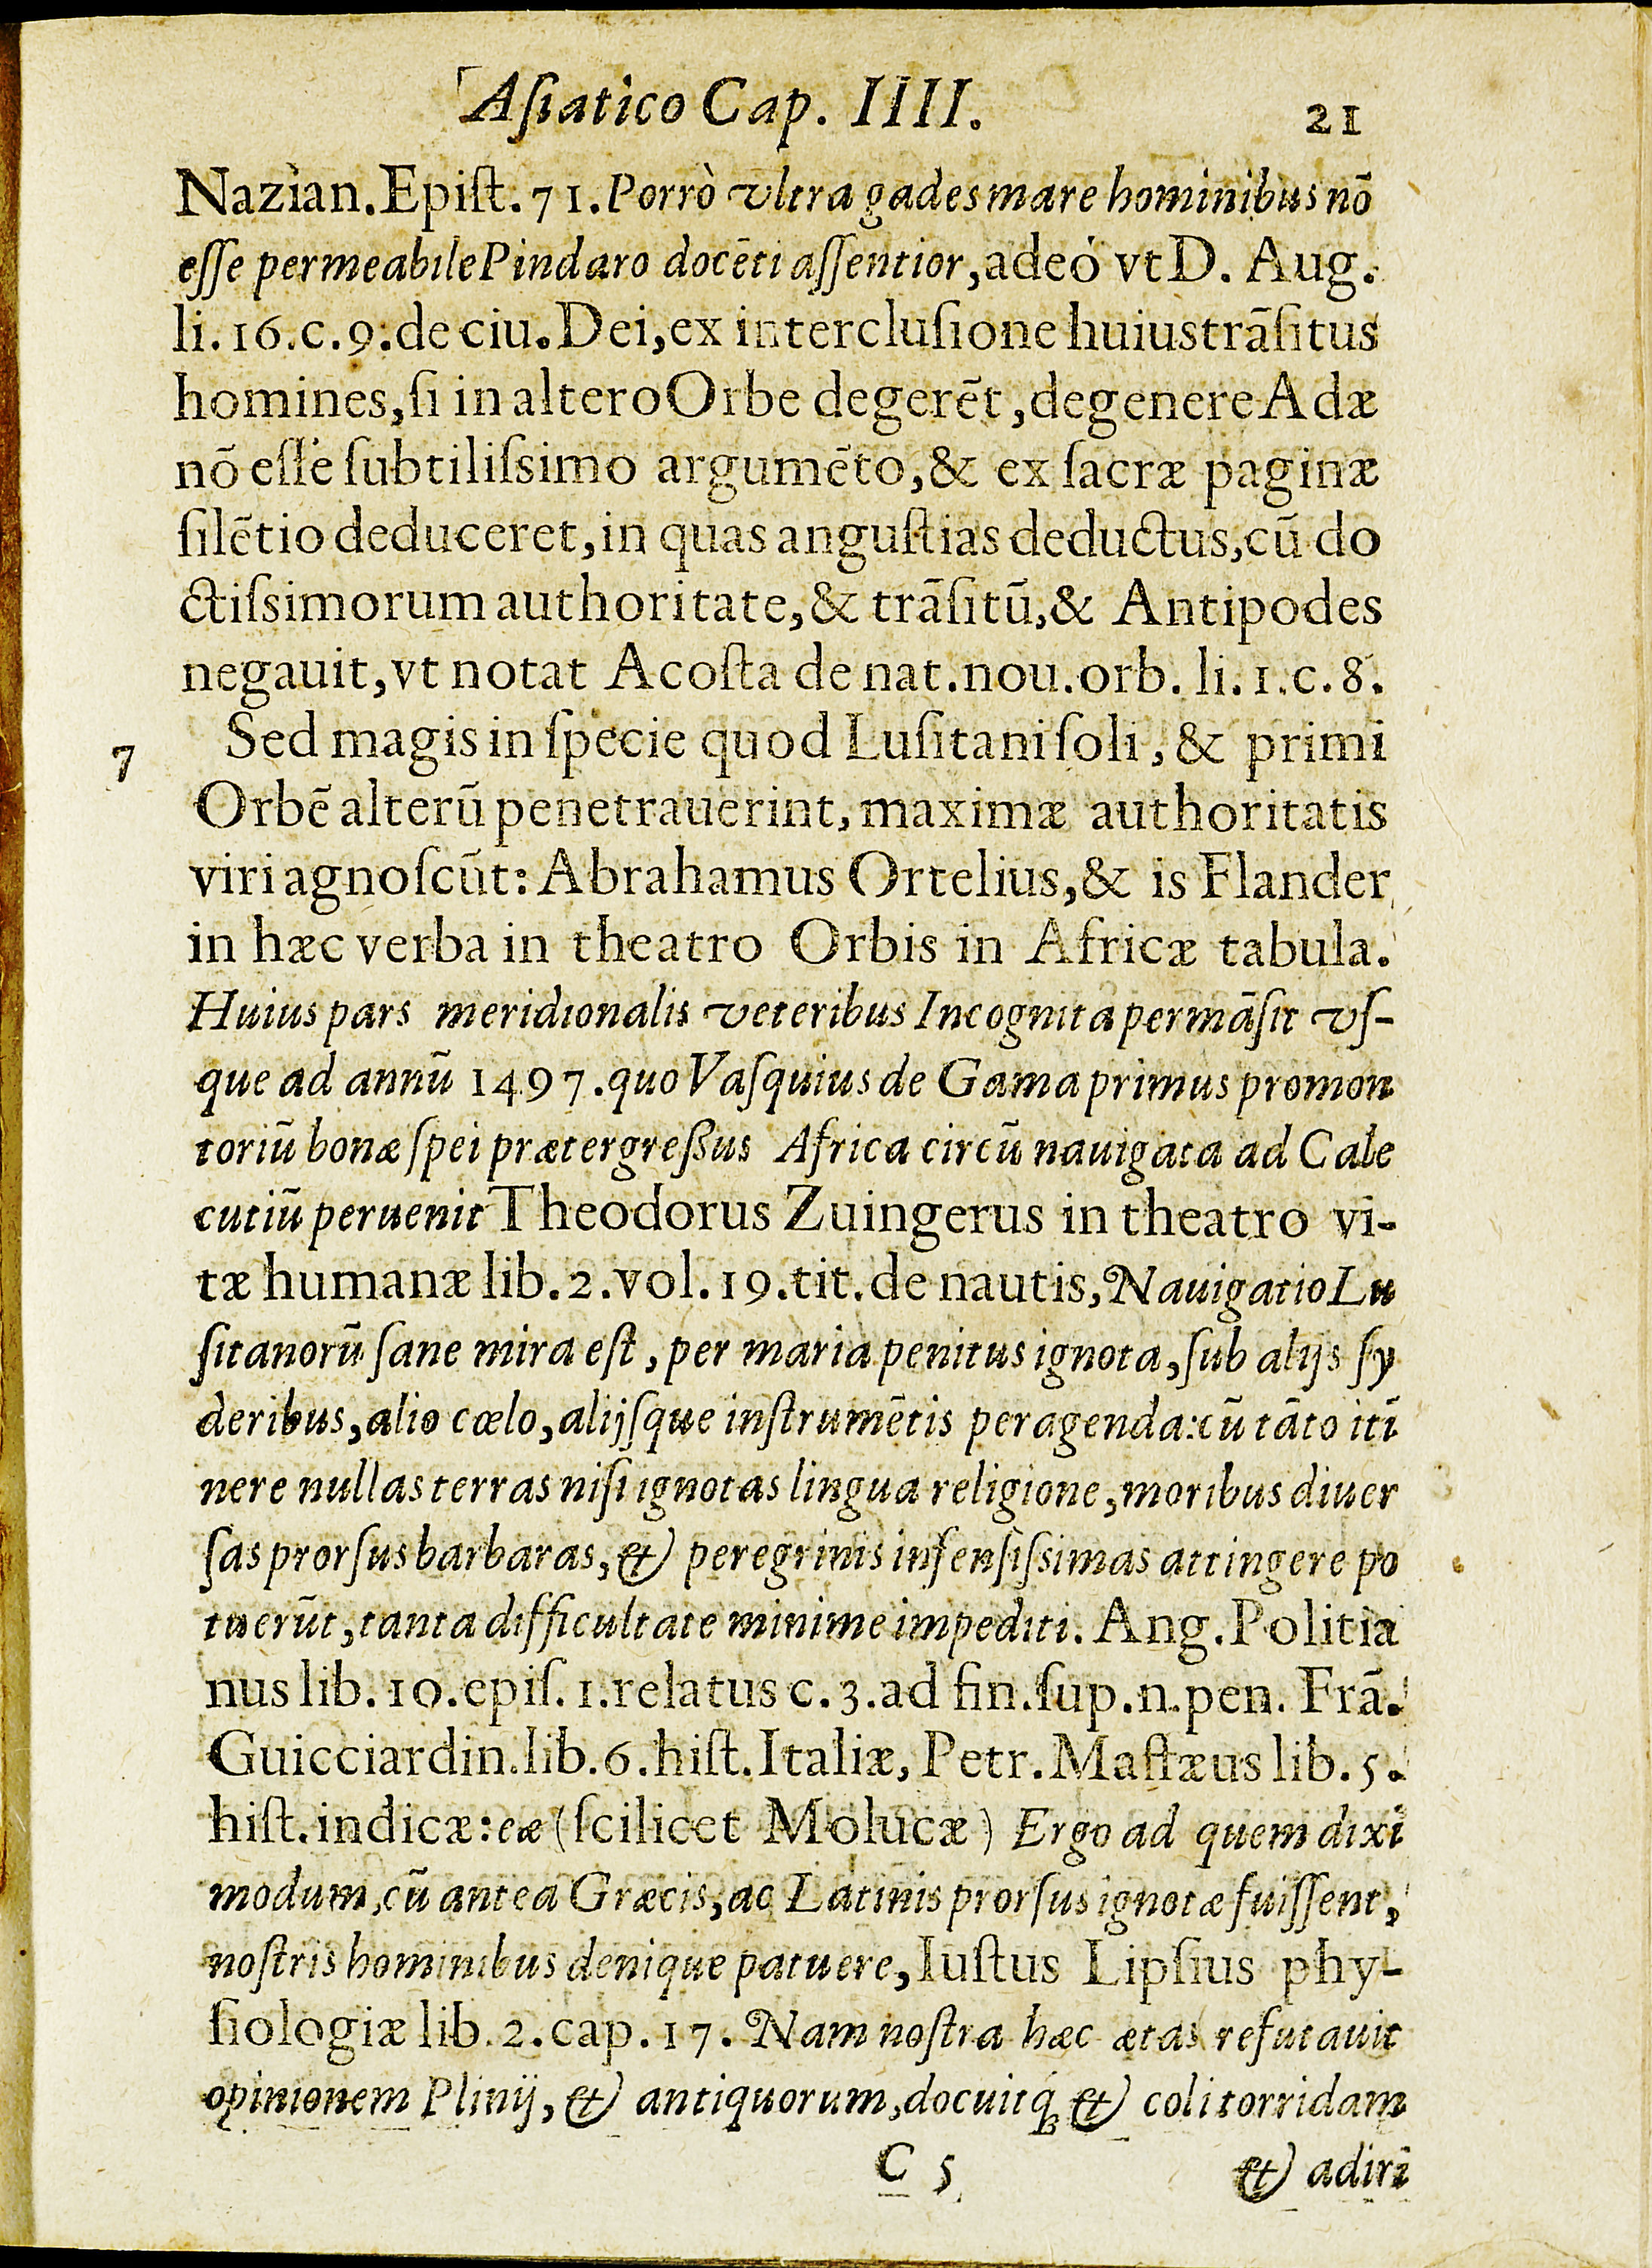 Aſiatico Cap. IIII. 21
Nazian. Epiſt. 71. Porrò vltra gades mare hominibus nō
eſſe permeabile Pindaro docēti aſſentior, adeó vt D. Aug.
li. 16. c. 9. de ciu. Dei, ex intercluſione huius trāſitus
homines, ſi in altero Orbe degerēt, de genere Adæ
nō eſſe ſubtiliſsimo argumēto, & ex ſacræ paginæ
ſilētio deduceret, in quas anguſtias deductus, cū do
ctiſsimorum authoritate, & trāſitū, & Antipodes
negauit, vt notat Acoſta de nat. nou. orb. li. 1. c. 8.
7 Sed magis in ſpecie quod Luſitani ſoli, & primi
Orbē alterū penetrauerint, maximæ authoritatis
viri agnoſcūt: Abrahamus Ortelius, & is Flander
in hæc verba in theatro Orbis in Africæ tabula.
Huius pars meridionalis veteribus Incognita permāſit vſ-
que ad annū 1497. quo Vaſquius de Gama primus promon
toriū bonæ ſpei prætergreſſus Africa circū nauigata ad Cale
cutiū peruenit Theodorus Zuingerus in theatro vi-
tæ humanæ lib. 2. vol. 19. tit. de nautis, Nauigatio Lu
ſitanorū ſane mira eſt, per maria penitus ignota, ſub alijs ſy
deribus, alio cœlo, alijſque inſtrumētis peragenda: cū tāto iti
nere nullas terras niſi ignotas lingua religione, moribus diuer
ſas prorſus barbaras, & peregrinis infenſiſsimas attingere po
tuerūt, tanta difficultate minime impediti. Ang. Politia
nus lib. 10. epiſ. 1. relatus c. 3. ad fin. ſup. n. pen. Frā.
Guicciardin. lib. 6. hiſt. Italiæ, Petr. Maffæus lib. 5.
hiſt. indicæ: eæ (ſcilicet Molucæ) Ergo ad quem dixi
modum, cū antea Græcis, ac Latinis prorſus ignotæ fuiſſent,
noſtris hominibus denique patuere, Iuſtus Lipſius phy-
ſiologiæ lib. 2. cap. 17. Nam noſtra hæc ætas refutauit
opinionem Plinij, & antiquorum, docuitq́; & coli torridam
C 5 & adiri